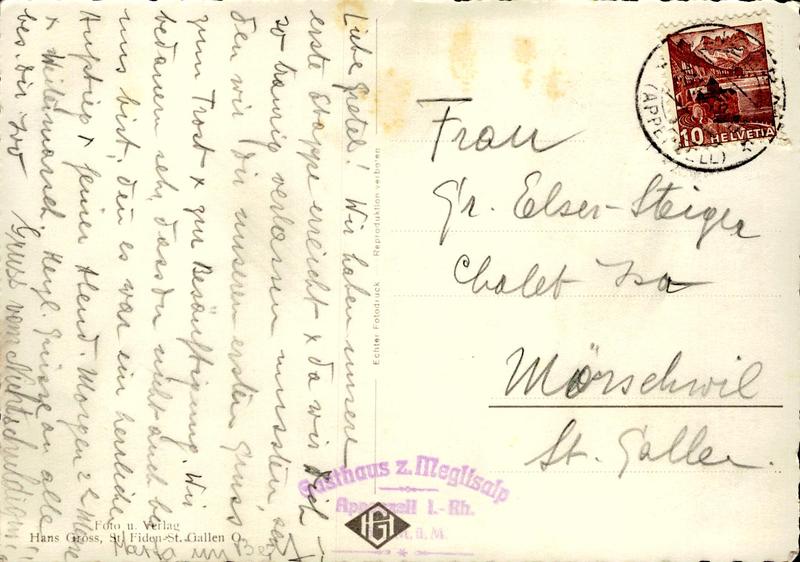 Liebe Gretel! Wir haben unsere
erste Etappe erreicht & da wir Dich
so traurig verlassen mussten, sen-
den wir Dir unseren ersten Gruss
zum Trost & zur Besänftigung. Wir
bedauern sehr, dass Du nicht auch bei
uns bist, denn es war ein herrlicher
Aufstieg & feiner Abend. Morgen
& Weitermarsch. Herzl. Grüsse an alle
bes. Dir
Gruss vom
Foto u. Verlag
Hans Gross, St. Fiden-St. Gallen O.
Echter Fotodruck Reproduktion verboten
HELVETIA
10
(APPENZELL)
Frau
Gr. Elser-Steiger
Chalet Isa
Mörschwil
St. Gallen.
Gasthaus z. Meglisalp
Appenzell I.-Rh.
m ü. M.
HG